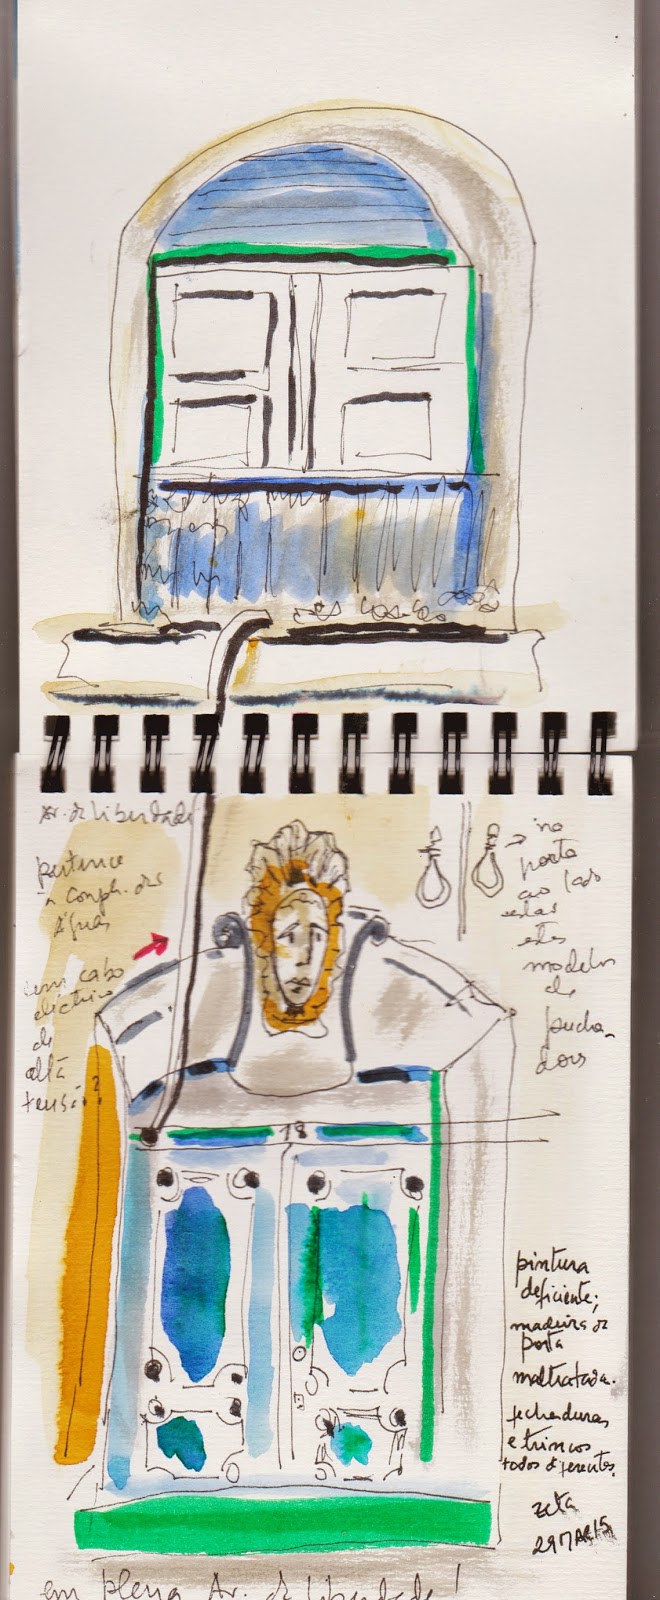 Av. da liberdade
pertence
à comph. das
Águas
um cabo
eléctrico
de
alta
tensão?
na
porta
ao lado
estão
estes
modelos
de
puxa-
dores
18
pintura
deficiente;
madeira da
porta
maltratada.
fechaduras
e trincos
todos diferentes.
zeta
29MAR15
em plena Av. da liberdade!